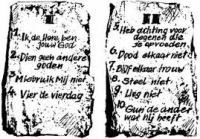 I
1. Ik de Here ben
jouw God
2. Dien geen andere
goden
3. Misbruik Mij niet
4. Vier de vierdag
II
5. Heb achting voor
degenen die
je opvoeden
6. Dood elkaar niet
7. Blijf elkaar trouw
8. Steel niet
9. Lieg niet
10. Gun de ander
wat hij heeft